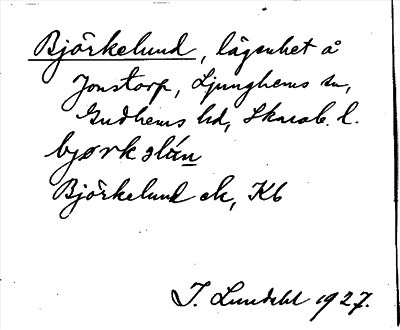 Björkelund, lägenhet å
Jonstorp, Ljunghems sn,
Gudhems hd, Skarab. l.
bjørkəlún
Björkelund ek, Kb
I. Lundahl 1927.